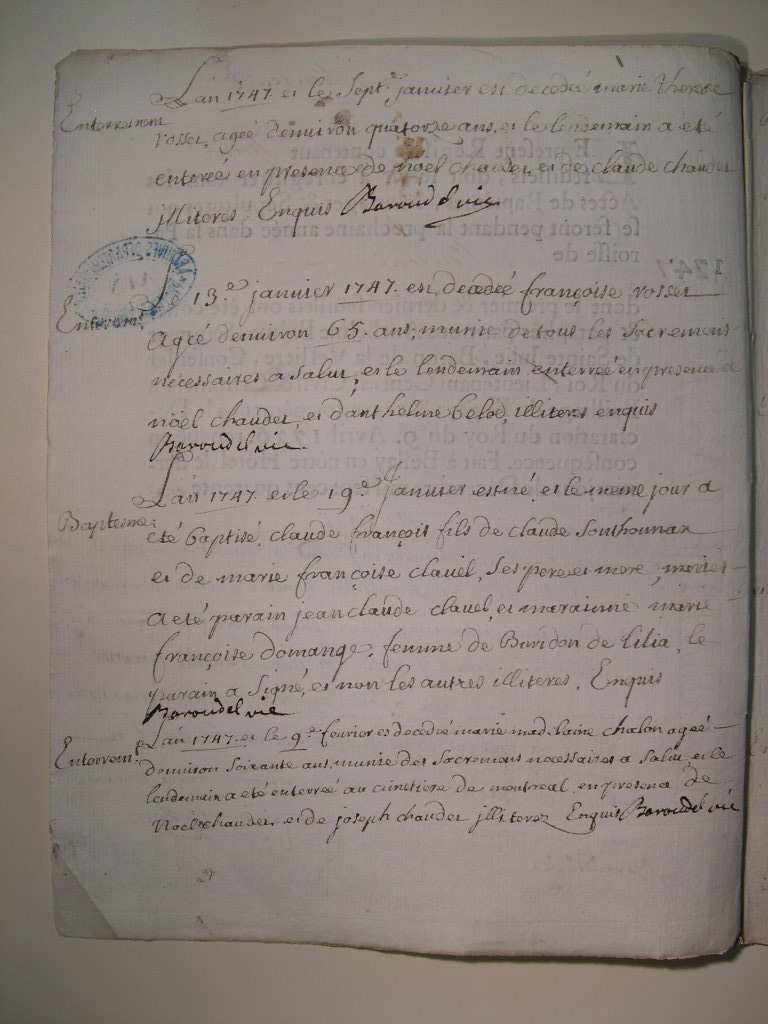 Enterrement
L'an 1747. et le Sept.e janvier est decedeé marie therese
rosset, ageé denviron quatorze ans, et le lendemain a eté
enterreé en presence de noël chaudet, et de claude chaudet
jlliteres Enquis Baroudel vic.
Enterrem.t
L 13.e janvier 1747. est decedeé françoise rosset
ageé denviron 65. ans, munie de tous les sacremens
necessaires a salut, et le lendemain enterreé en presence de
noël chaudet, et d'anthelme beloz, illiteres enquis
Baroudel vic.
Baptesme
L'an 1747. et le 19.e janvier est né, et le meme jour a
eté baptisé claude françois fils de claude Southonnax
et de marie françoise clavel, ses pere et mere, mariés
a eté parain jean claude clavel, et maraine marie
françoise domange femme de Buridon de lilia, le
parain a signé, et non les autres illiteres. Enquis
Baroudel vic
Enterrem.t
L'an 1747. et le 9.e fevrier est decedeé marie madelaine chalon ageé
denviron soixante ans, munie des sacremens necessaires a salut, et le
lendemain a eté enterreé au cimetiere de montreal, en presence de
Noël chaudet et de joseph chaudet jlliterez Enquis Baroudel vic